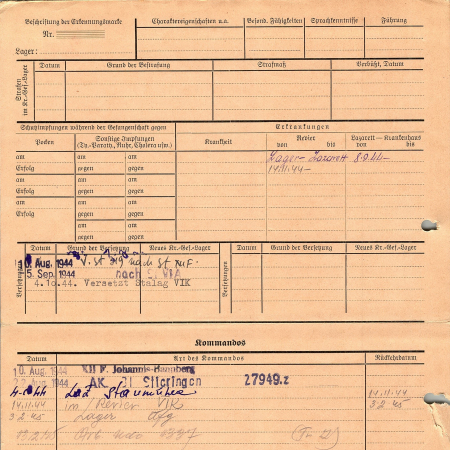 Beschriftung der Erkennungsmarke
Nr.
Lager:
Charaktereigenschaften u.a.
Besond. Fähigkeiten
Sprachkenntnisse
Führung
Strafen im Kr.-Gef.-Lager
Datum
Grund der Bestrafung
Strafmaß
Verbüßt, Datum
Schutzimpfungen während der Gefangenschaft gegen
Erkrankungen
Pocken
Sonstige Impfungen
(Ty.-Paraty., Ruhr, Cholera usw.)
Krankheit
Revier
von bis
Lazarett – Krankenhaus
von bis
am am am
Erfolg gegen gegen
am am am
Erfolg gegen gegen
am am am
Erfolg gegen gegen
am am
gegen gegen
Lager-Lazarett 8.9.44-
14.11.44-
Versetzungen
Datum
Grund der Versetzung
Neues Kr.-Gef.-Lager
Versetzungen
Datum
Grund der Versetzung
Neues Kr.-Gef.-Lager
10. Aug. 1944 nach St XIIF.
5. Sep. 1944 nach S. VI A
4.10.44. Versetzt Stalag VIK
Kommandos
Datum
Art des Kommandos
Rückkehrdatum
10. Aug. 1944 XII F. Johannis-Bannberg
22. Aug. 1944 AK. 21 27949.z
4.10.44
14.11.44 im Revier VIK 14.11.44
3.2.45 Lager 3.2.45
13.2.45 Arb. Kdo 1337